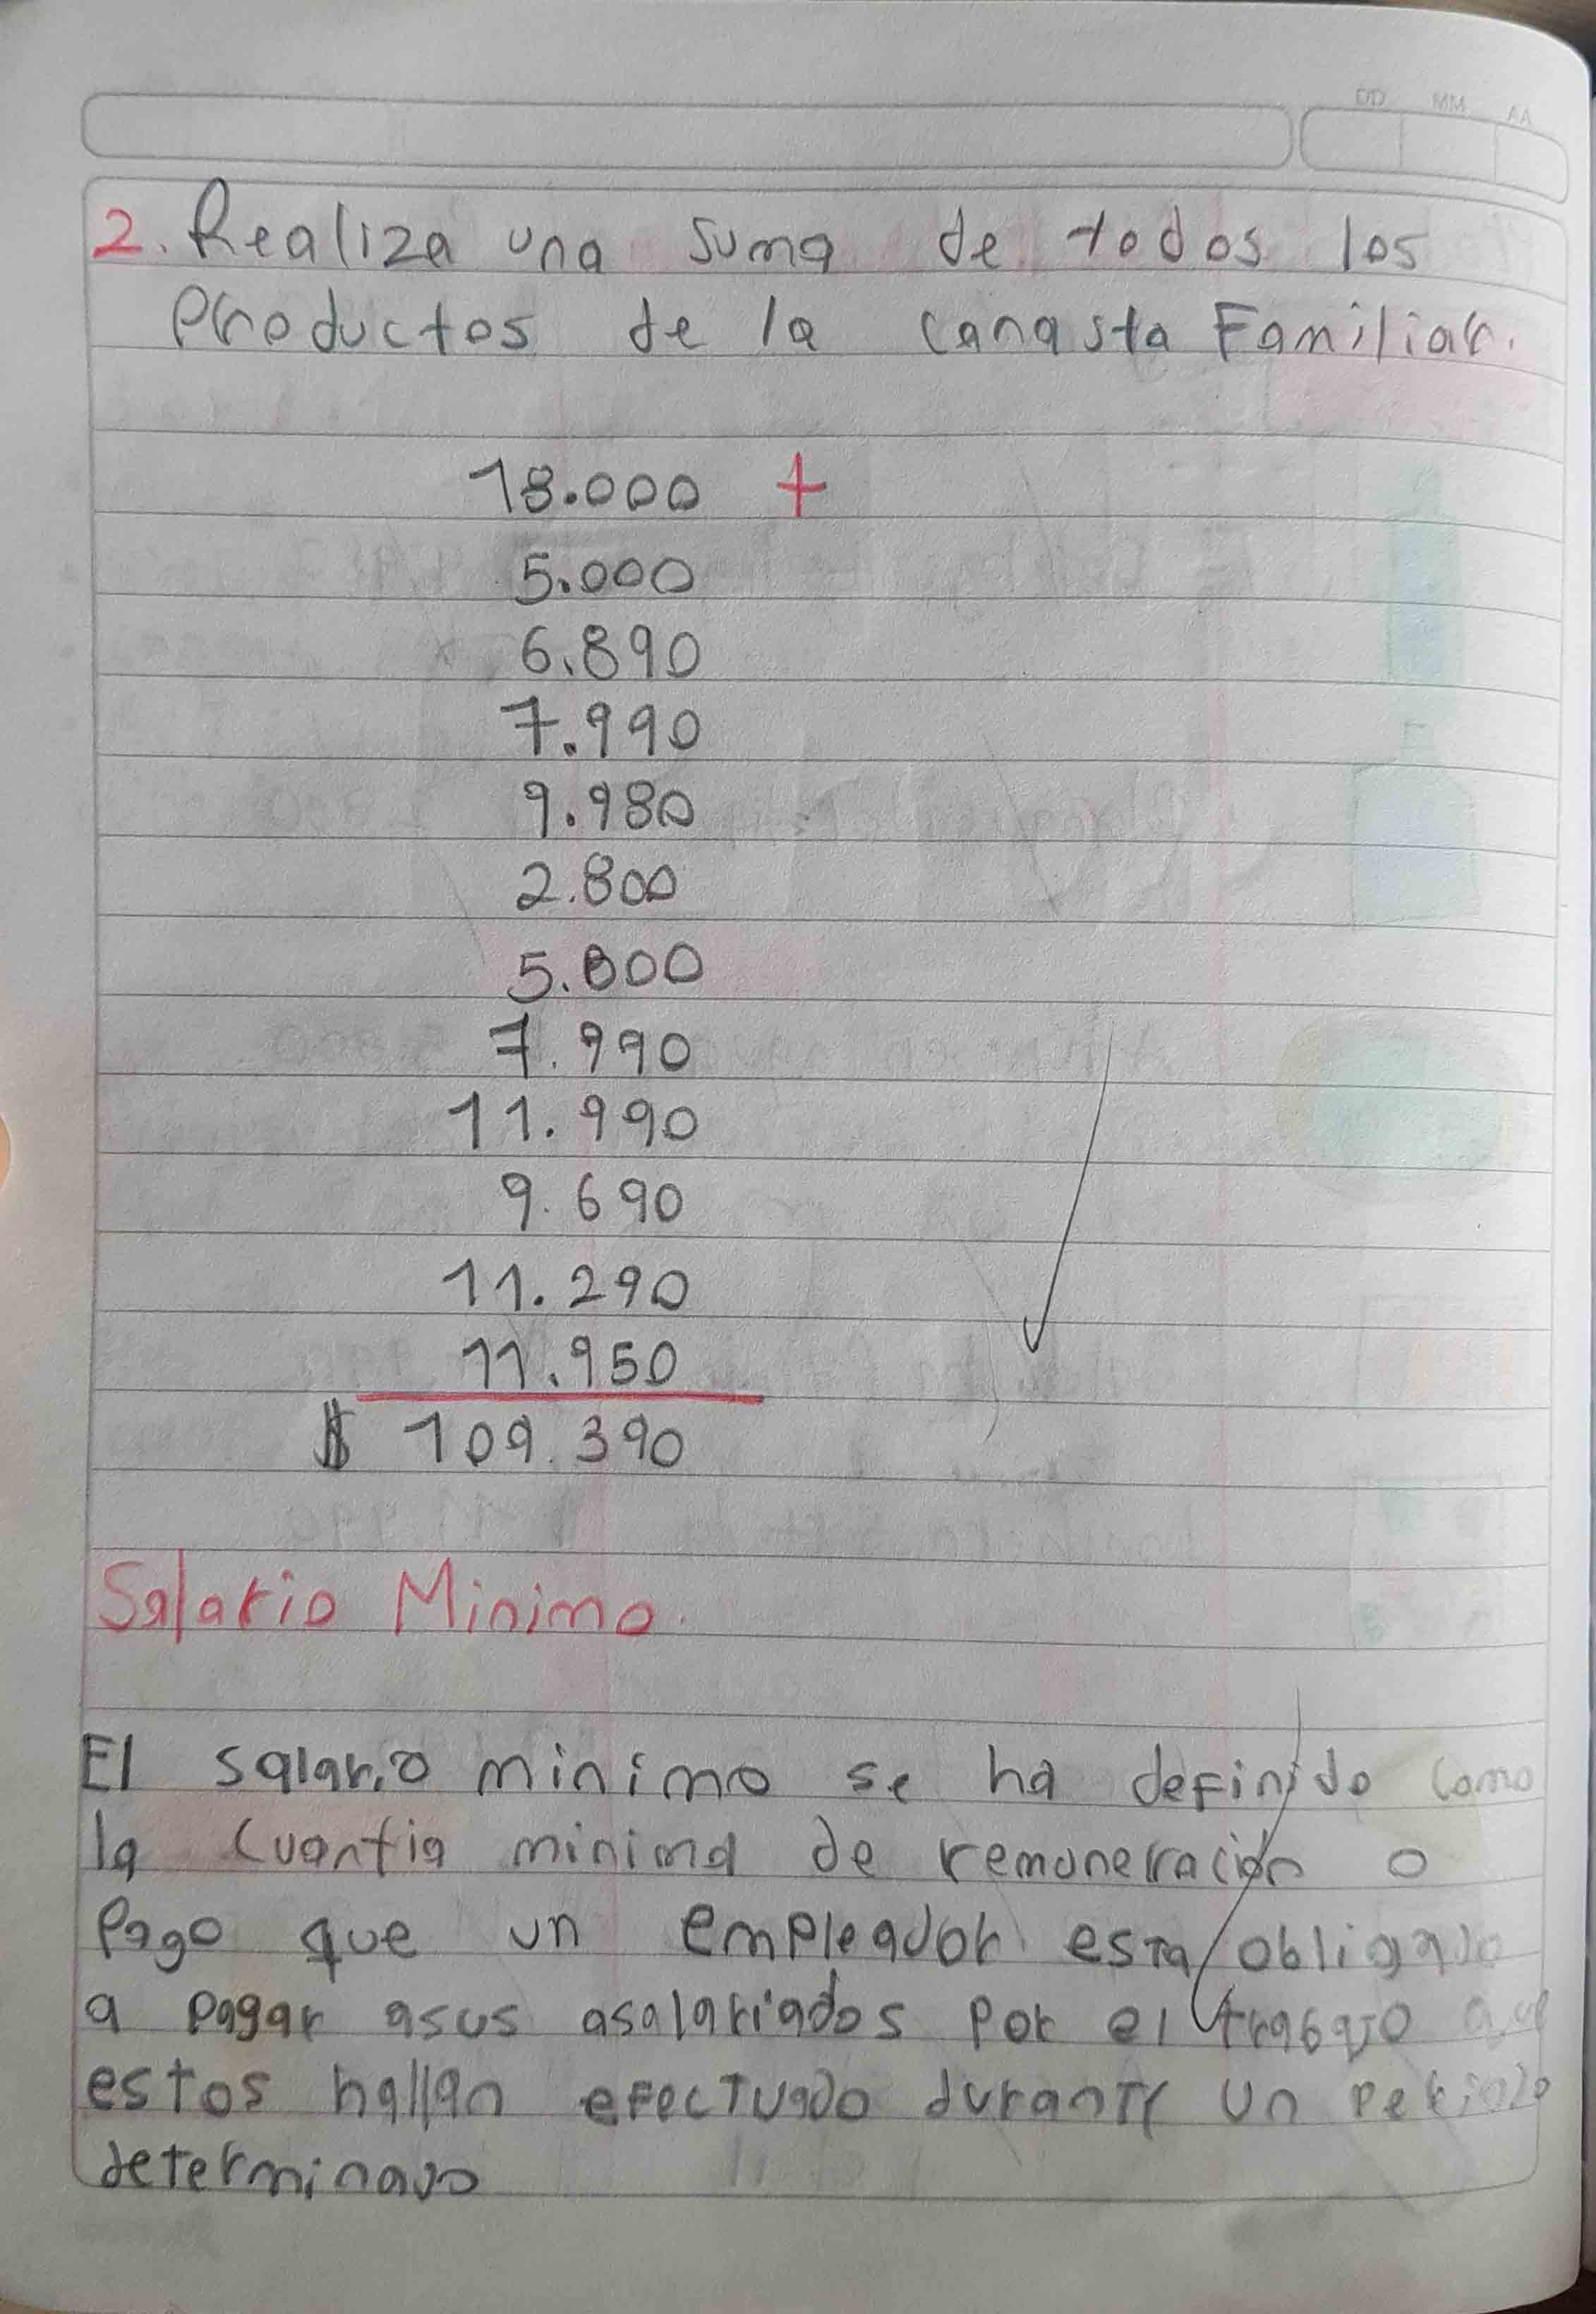 DD MM AA
2. Realiza una suma de todos los
Productos de la canasta Familiar.
18.000 +
5.000
6.890
7.990
9.980
2.800
5.800
7.990
11.990
9.690
11.290
11.950
$ 109.390
Salario Minimo.
El salario minimo se ha definido como
la cuantia minima de remuneración o
Pago que un empleador esta obligado
a pagar asus asalariados Por el trabajo que
estos hallan efectuado durante un periodo
determinado